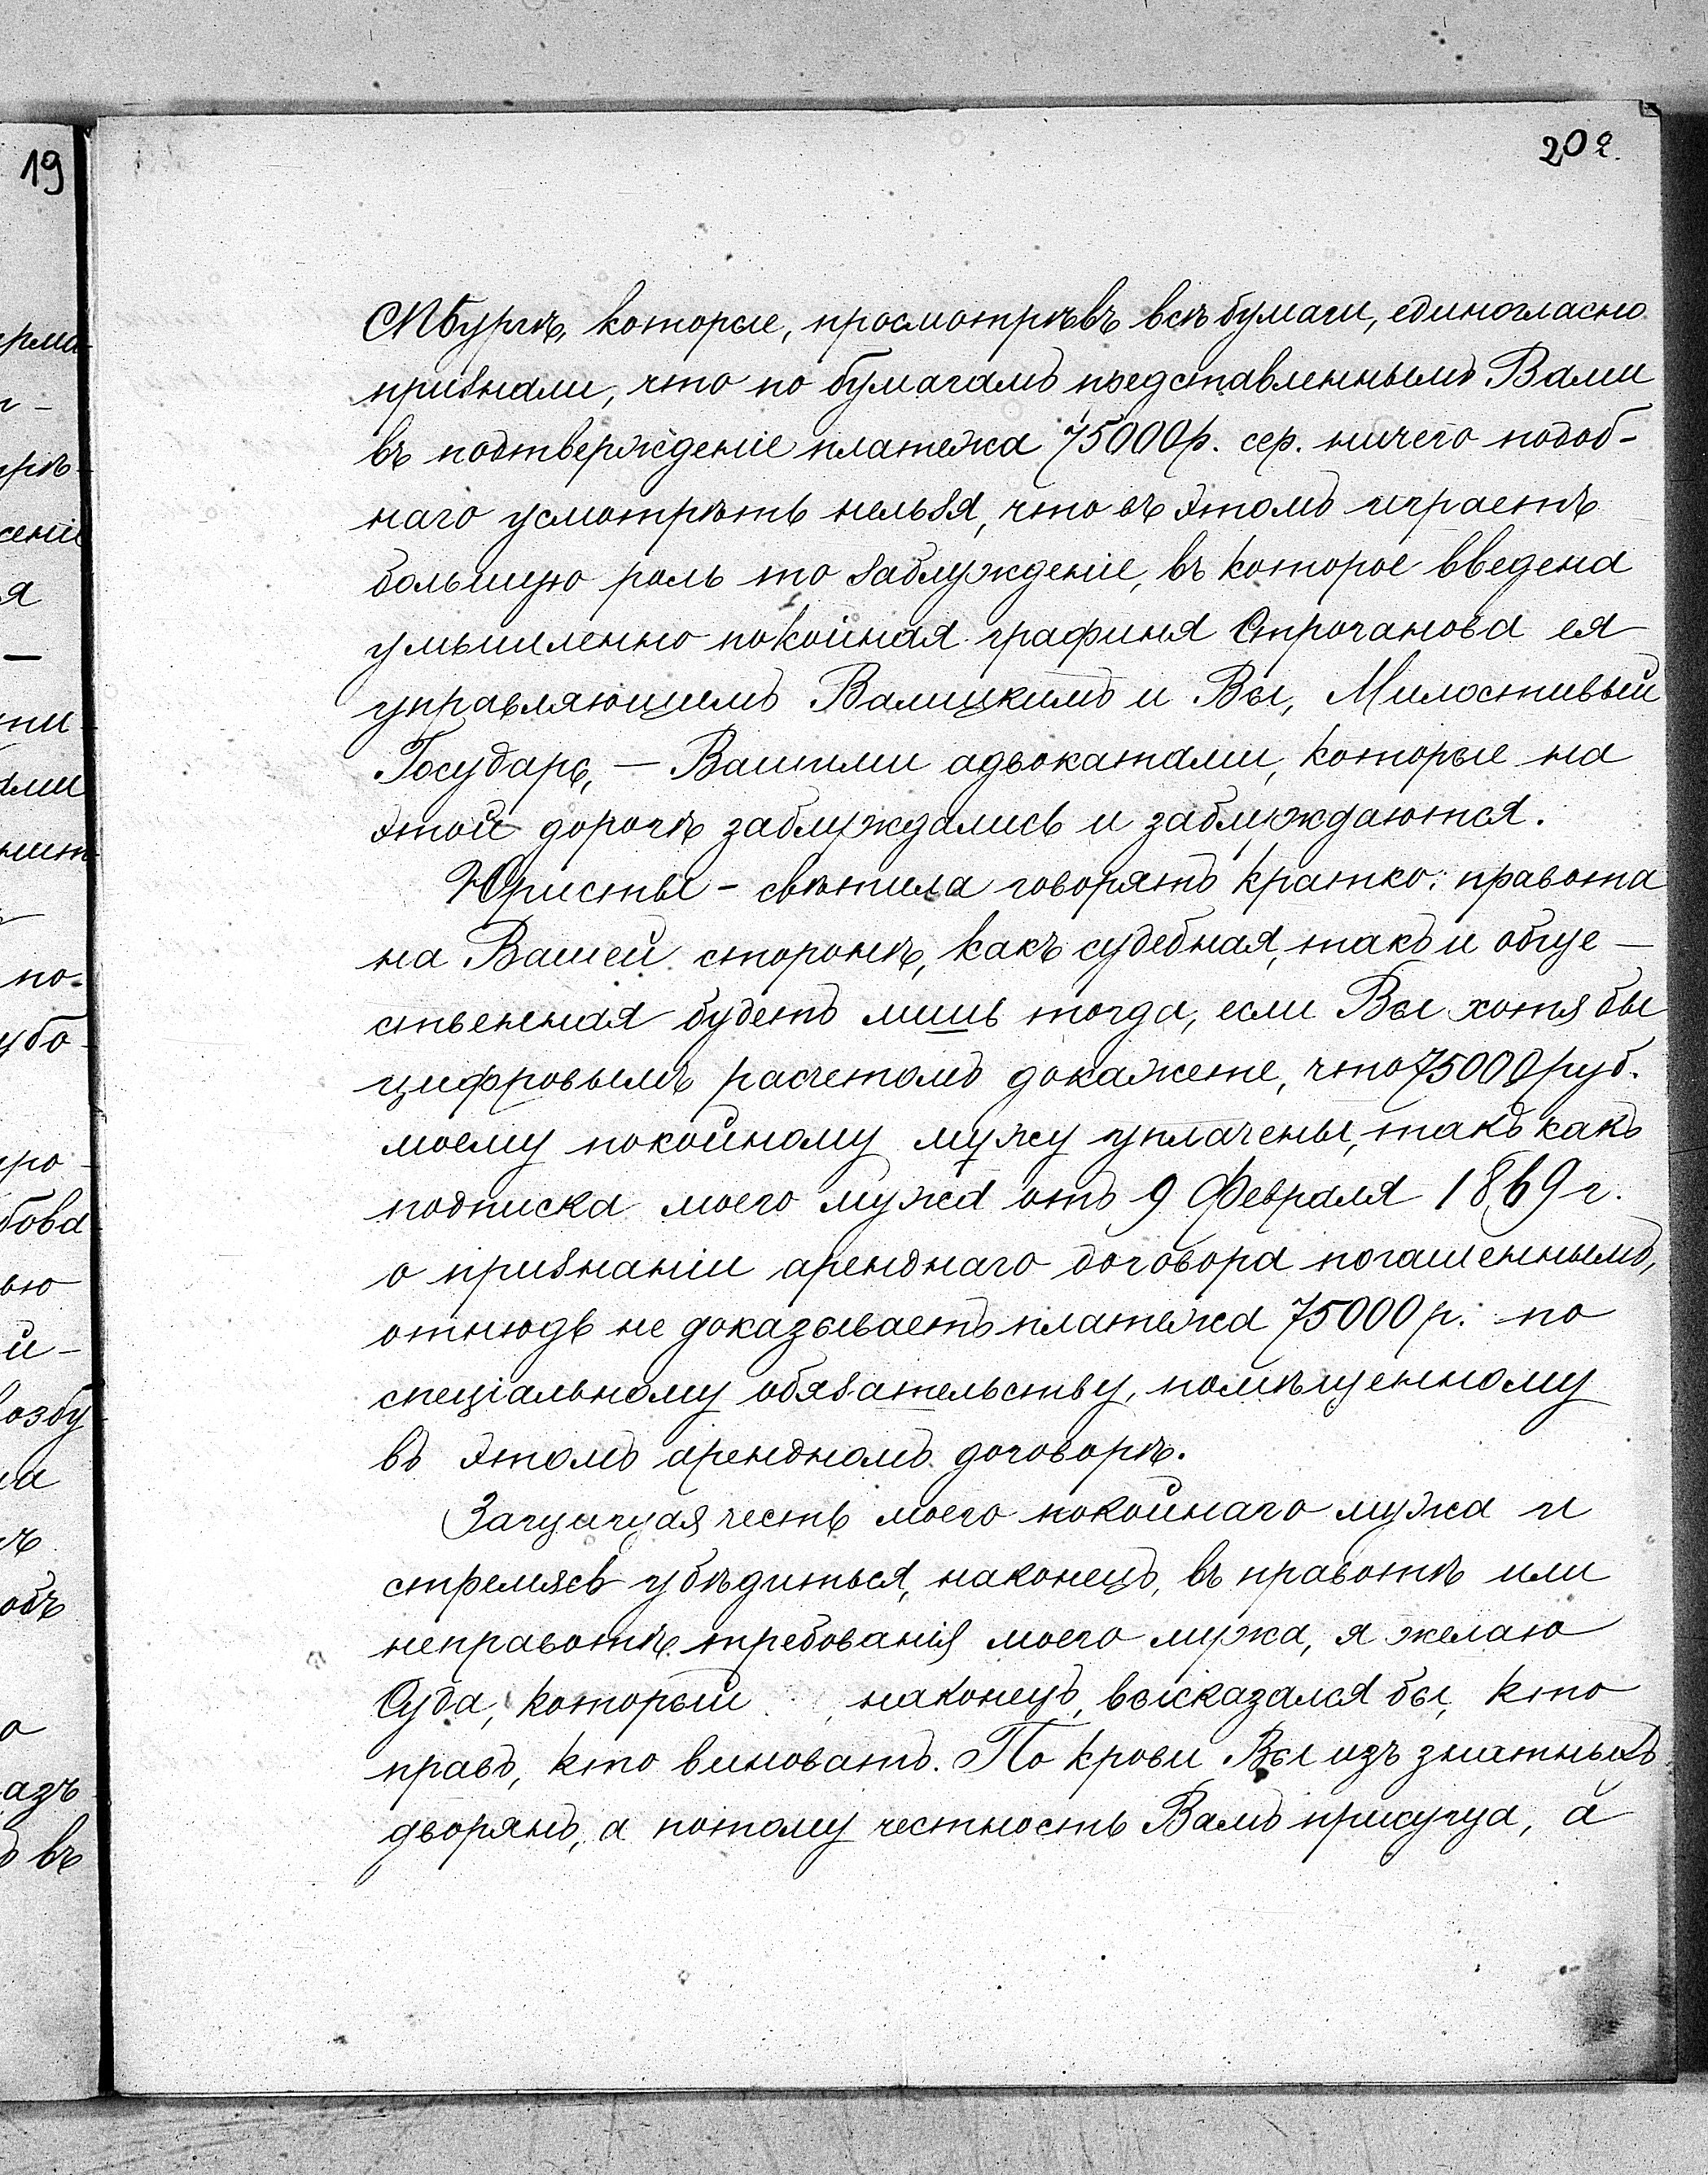 19
202.
СПбургѣ, которые, просмотрѣвъ всѣ бумаги, единогласно
признали, что по бумагамъ представленнымъ Вами
въ подтвержденіе платежа 75000 р. сер. ничего подоб-
наго усмотрѣть нельзя, что въ этомъ играетъ
большую роль то заблужденіе, въ которое введена
умышленно покойная графиня Строганова ея
управляющимъ Валицкимъ и Вы, Милостивый
Государь, — Вашими адвокатами, которые на
этой дорогѣ заблуждались и заблуждаются.
Юристы - свѣтила говорятъ кратко: правота
на Вашей сторонѣ, какъ судебная, такъ и обще-
ственная будетъ лишь тогда, если Вы хотя бы
цифровымъ расчетомъ докажете, что 75000 руб.
моему покойному мужу уплачены, такъ какъ
подписка моего мужа отъ 9 Февраля 1869 г.
о признаніи аренднаго договора погашеннымъ,
отнюдь не доказываетъ платежа 75000 р. по
спеціальному обязательству, помѣщенному
въ этомъ арендномъ договорѣ.
Защищая честь моего покойнаго мужа и
стремясь убѣдиться, наконецъ, въ правотѣ или
неправотѣ требованія моего мужа, я желаю
Суда, который, наконецъ, высказался бы, кто
правъ, кто виноватъ. По крови Вы изъ знатныхъ
дворянъ, а потому честность Вамъ присуща, а